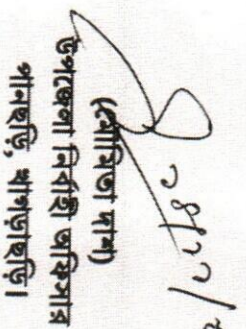 (মৌমিতা দাশ)
উপজেলা নির্বাহী অফিসার
পানছড়ি, খাগড়াছড়ি।